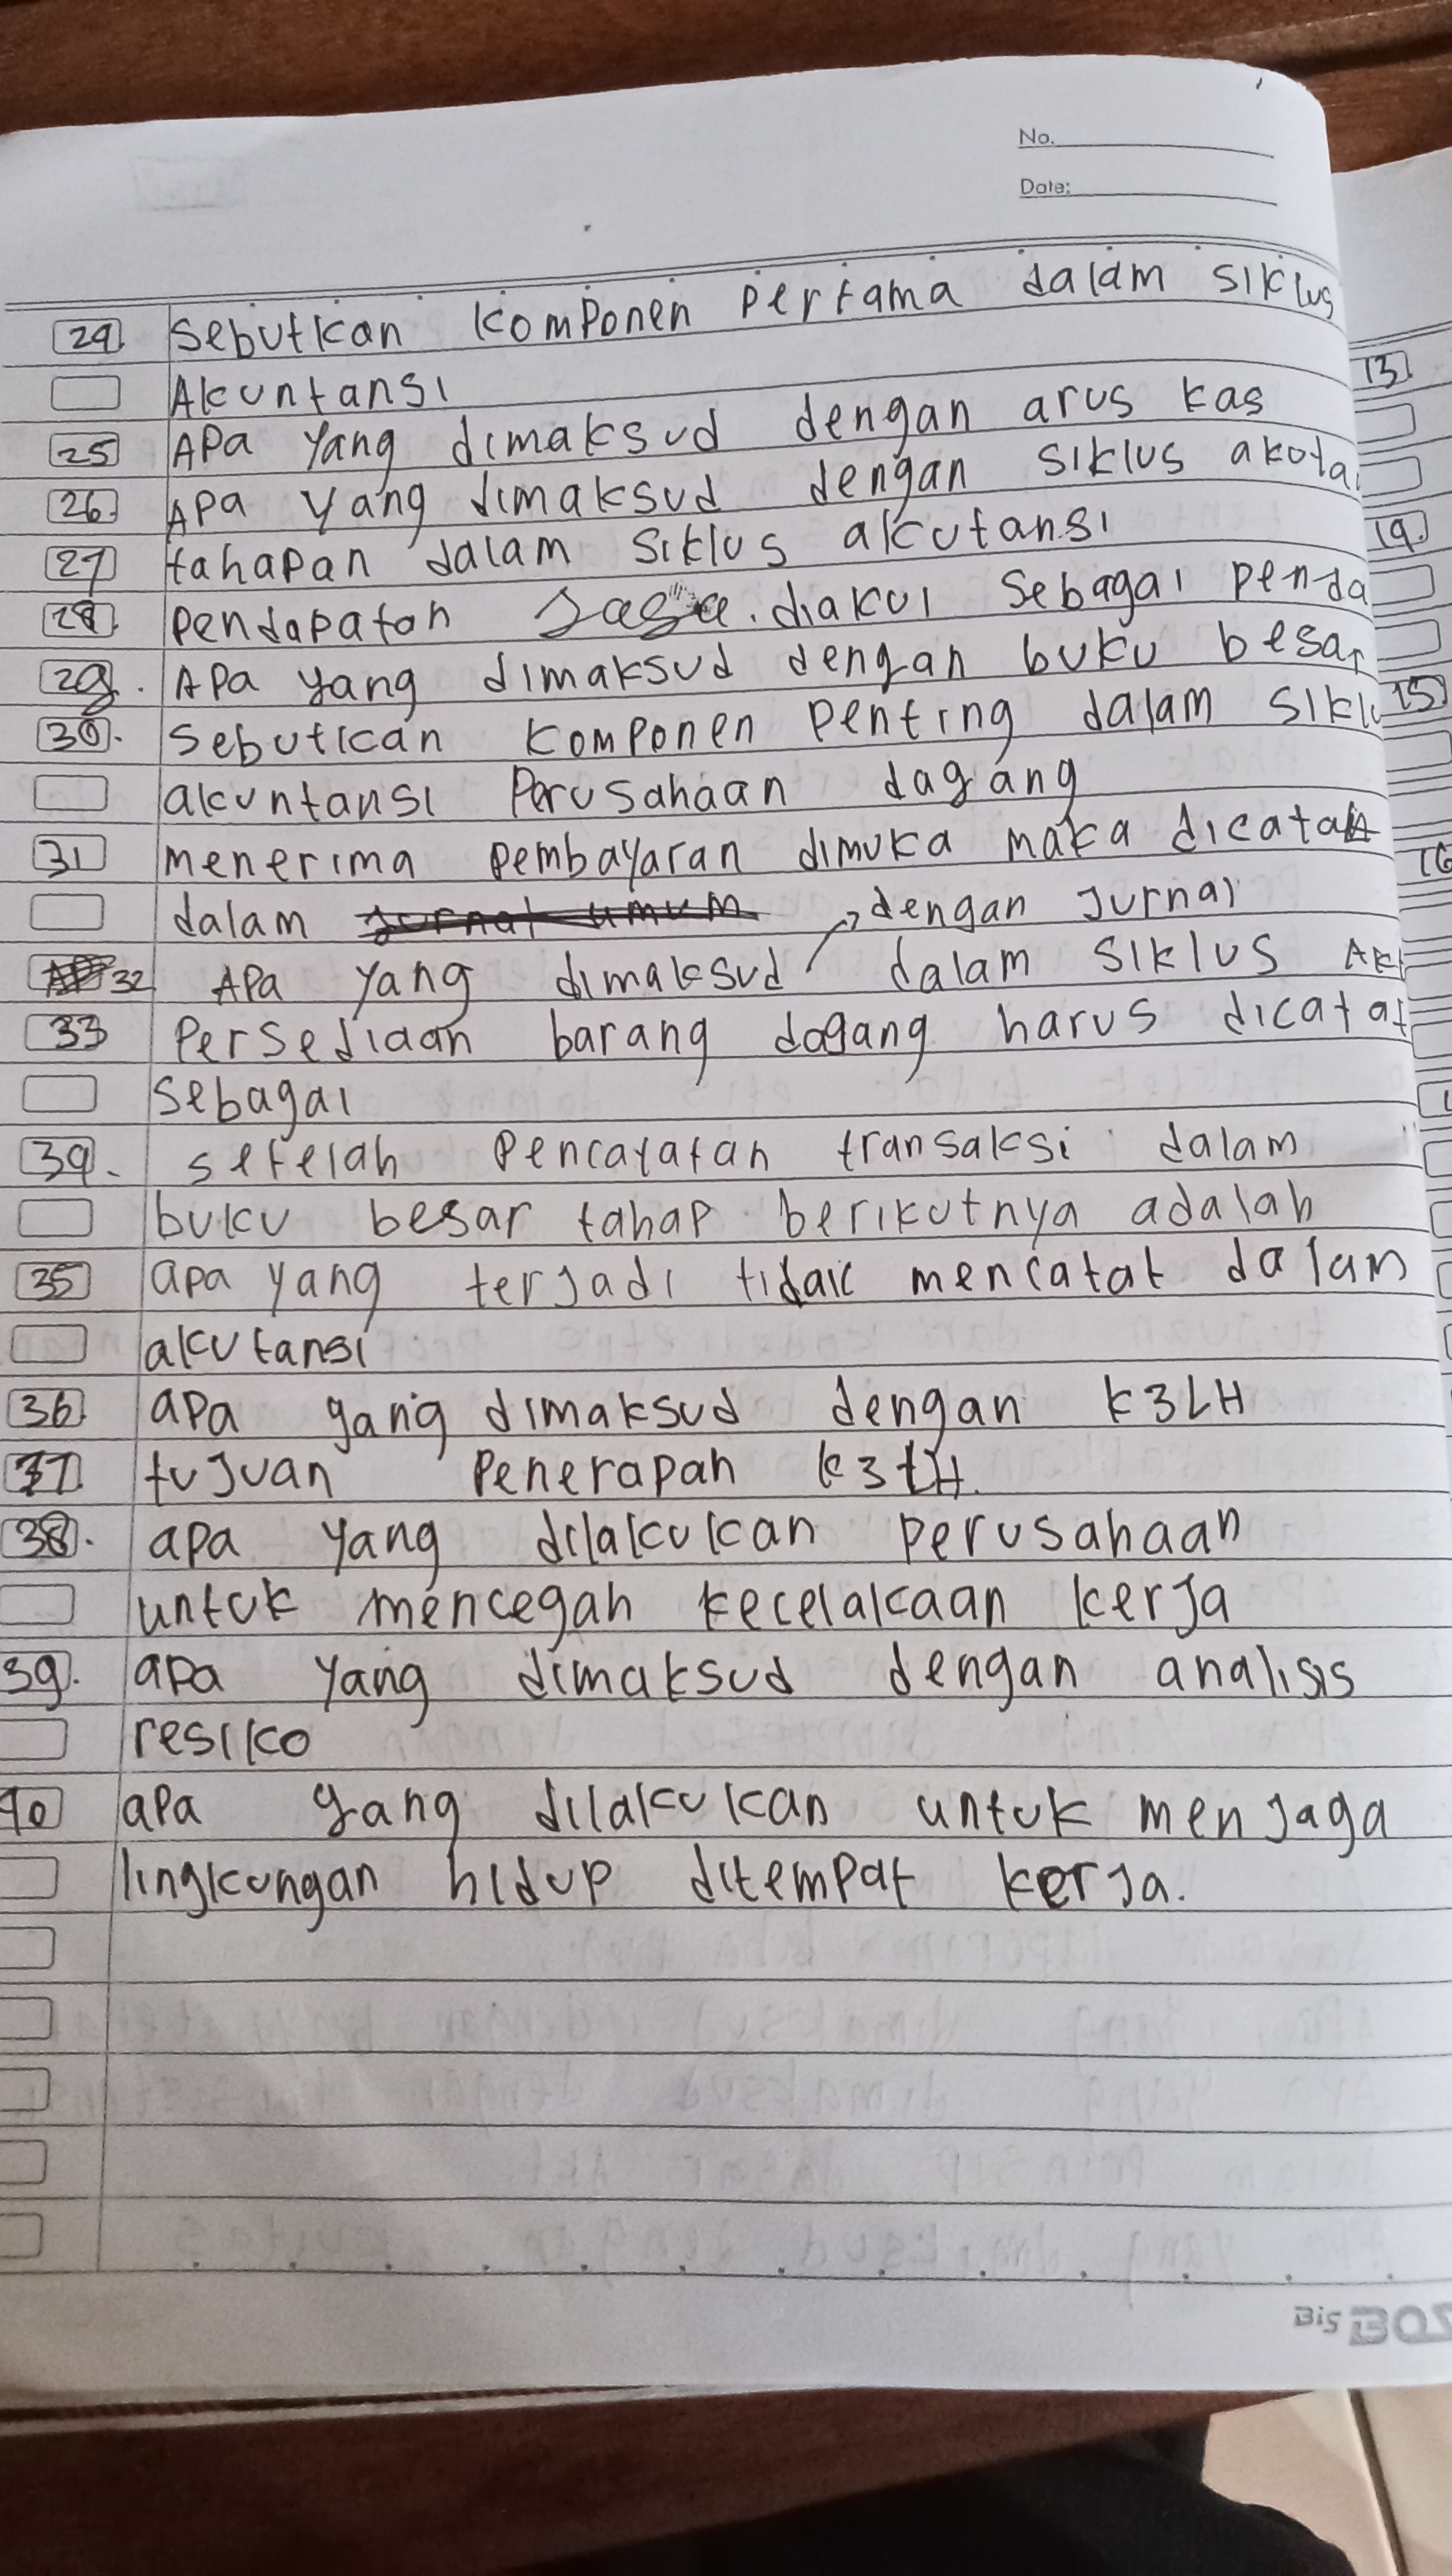 No.
Date:
24. Sebutkan komponen pertama dalam siklus
Akuntansi
25 Apa yang dimaksud dengan arus kas
26. Apa yang dimaksud dengan siklus akota
27 tahapan dalam siklus akutansi
28. pendapatan diakui sebagai penda
29. Apa yang dimaksud dengan buku besar
30. sebutkan komponen penting dalam siklu
akuntansi Perusahaan dagang
31 menerima pembayaran dimuka maka dicatat
dalam jurnal umum dengan Jurnal
32 Apa yang dimaksud dalam siklus Ak
33 Persediaan barang dagang harus dicatat
sebagai
34. setelah Pencayatan transaksi dalam
buku besar tahap berikutnya adalah
35 apa yang terjadi tidak mencatat dalam
akutansi
36 apa yang dimaksud dengan K3LH
37. tujuan Penerapan K3LH.
38. apa yang dilakukan perusahaan
untuk mencegah kecelakaan kerja
39. apa yang dimaksud dengan analisis
resiko
40 apa yang dilakukan untuk menjaga
lingkungan hidup ditempat kerja.
13.
14.
15)
16
Big BOS